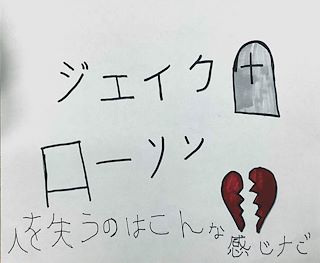 ジエイク
ローソン
人を失うのはこんな感じナご